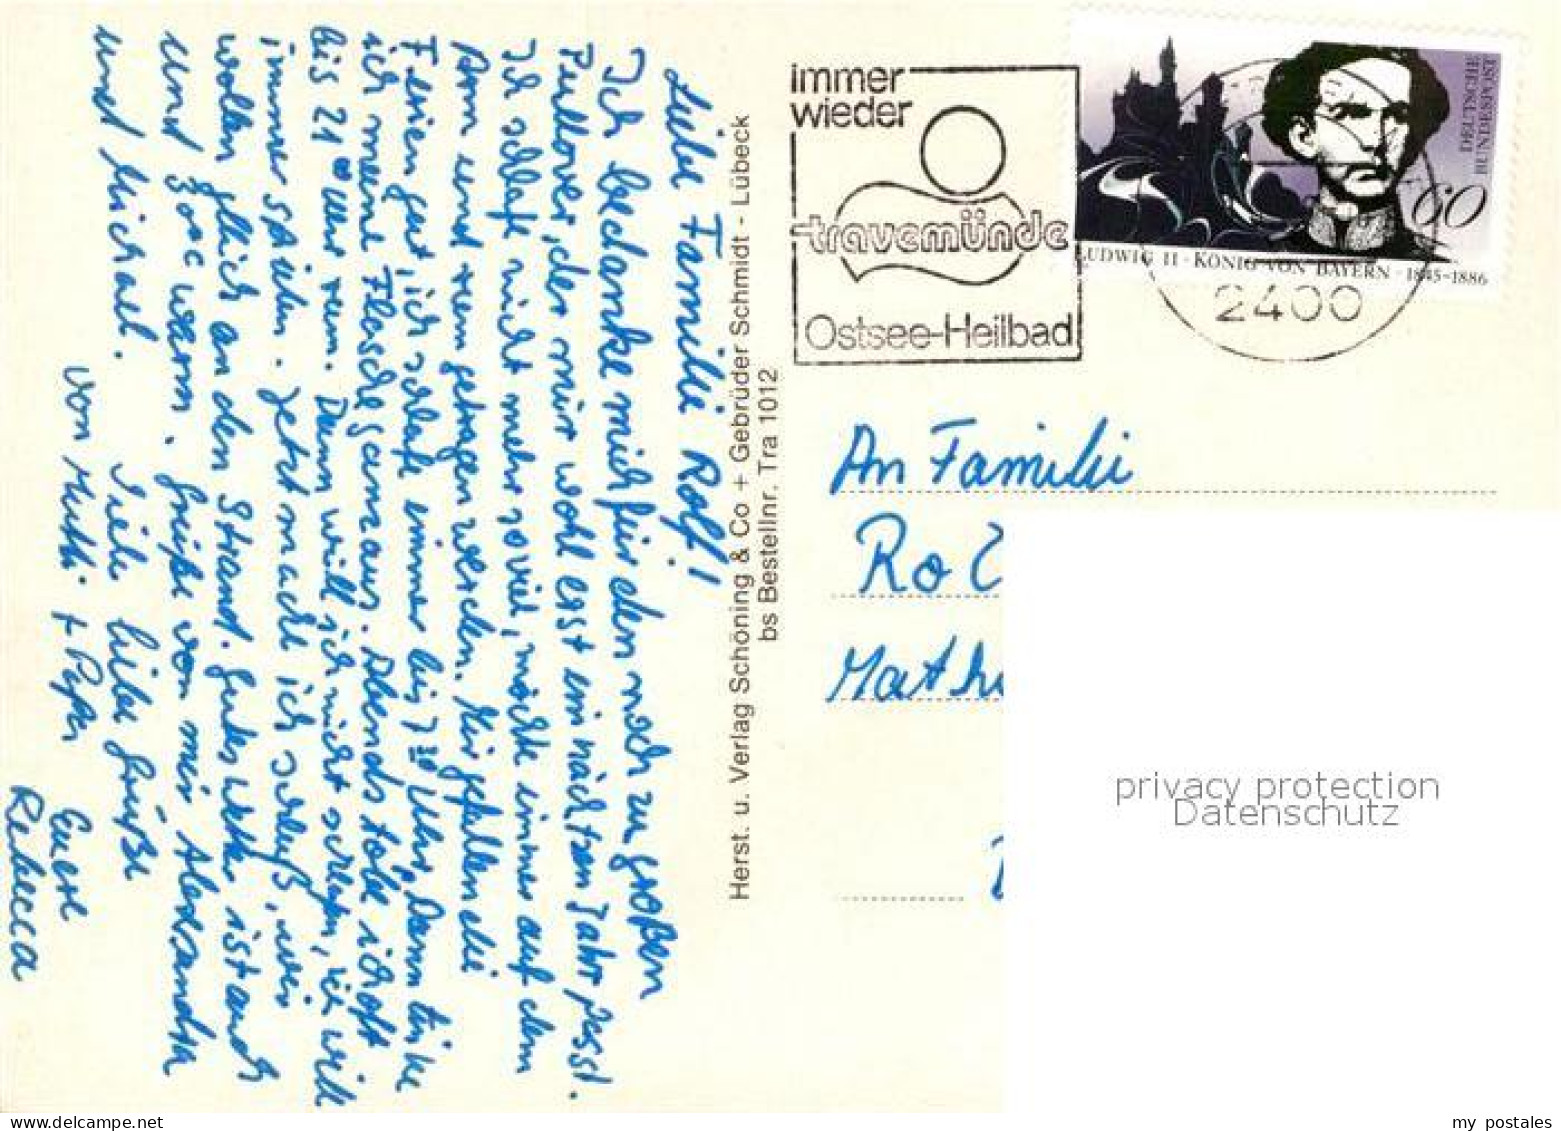 Liebe Familie Rolf!
Ich bedanke mich für den noch zu großen
Pullover, der mir wohl erst im nächsten Jahr passt.
Ich schlafe nicht mehr soviel, möchte immer auf dem
Arm und rum getragen werden. Mir gefallen die
Ferien gut, ich schlafe immer bis 7³⁰ Uhr, Dann trinke
ich meine Flasche ganz aus. Abends tobe ich oft
bis 21⁰⁰ Uhr rum. Dann will ich nicht schlafen, ich will
immer spielen. Jetzt mache ich schluß, wir
wollen gleich an den Strand. Gutes Wetter ist auch
und 30°C warm. Grüße von mir Alexandra
und Michael.
Viele liebe Grüße
von Mutti + Papa
Eure
Rebecca
Herst. u. Verlag Schöning & Co + Gebrüder Schmidt - Lübeck
bs Bestellnr. Tra 1012
immer
wieder
travemünde
Ostsee-Heilbad
DEUTSCHE
BUNDESPOST
60
LUDWIG II · KÖNIG VON BAYERN · 1845-1886
2400
An Familie
Ro
Math
privacy protection
Datenschutz
my postales